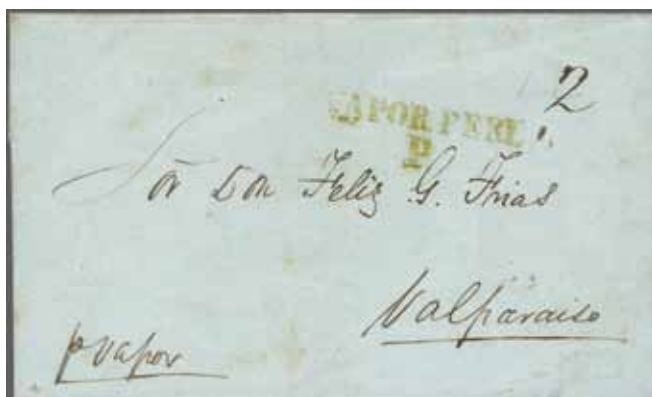 2
VAPOR PERU
P
Sor Don Feliz G. Frias
Valparaiso
p Vapor